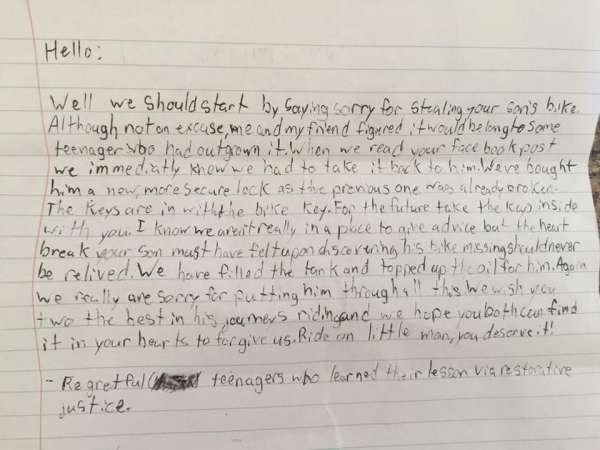 Hello:
Well we should start by saying sorry for stealing your son's bike.
Although not an excuse, me and my friend figured it would belong to some
teenager who had outgrown it. When we read your facebook post
we immediatly know we had to take it back to him. We've bought
him a new, more secure lock as the previous one was already broken.
The keys are in with the bike key. For the future take the key inside
with you. I know we aren't really in a place to give advice but the heart
break your son must have felt upon discovering his bike missing should never
be relived. We have filled the tank and topped up the oil for him. Again
we really are sorry for putting him through all this. We wish you
two the best in his journeys riding and we hope you both can find
it in your hearts to forgive us. Ride on little man, you deserve it!
- Regretful teenagers who learned their lesson via restorative
justice.